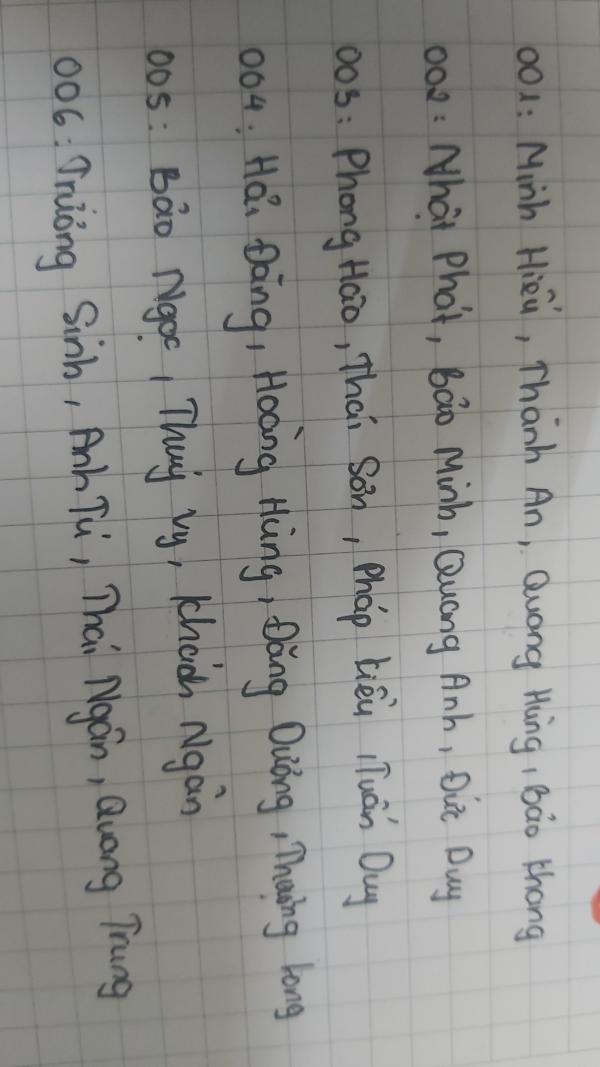 001: Minh Hiếu, Thành An, Quang Hùng, Bảo Khang
002: Nhật Phát, Bảo Minh, Quang Anh, Đức Duy
003: Phong Hào, Thái Sơn, Pháp Kiều, Tuấn Duy
004: Hải Đăng, Hoàng Hùng, Đăng Dương, Thượng Long
005: Bảo Ngọc, Thuý Vy, Khánh Ngân
006: Trường Sinh, Anh Tú, Thái Ngân, Quang Trung